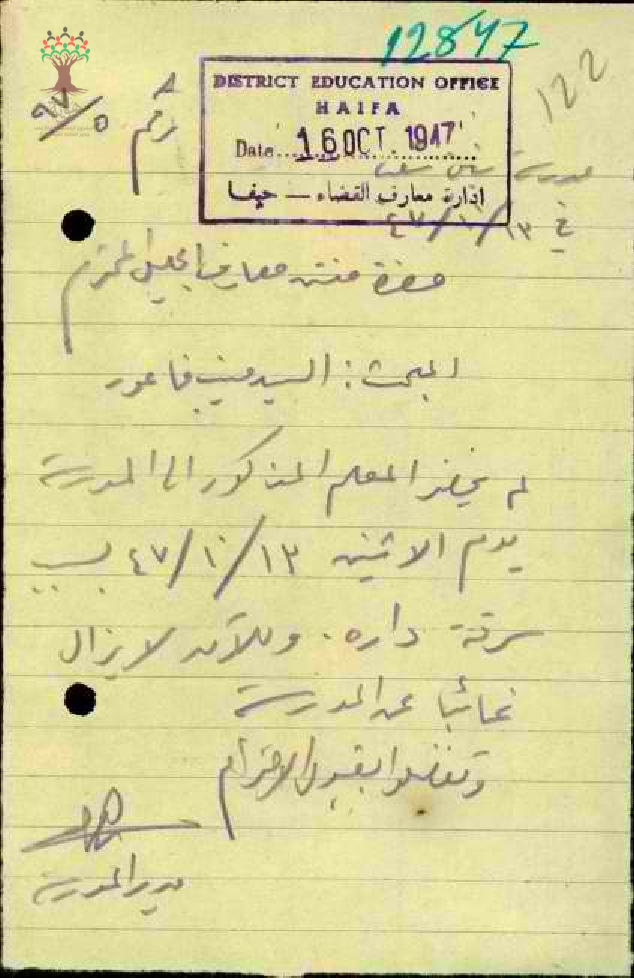 12847
122
DISTRICT EDUCATION OFFICE
HAIFA
Date 16 OCT. 1947
ادارة معارف القضاء — حيفا
رقم ٩٧/٥
مدرسة
في ١٣/١٠/٤٧
حضرة مفتش معارف الجليل المحترم
المبحث: السيد منيب فاعور
لم يحضر المعلم المذكور الى المدرسة
يوم الاثنين ١٣/١٠/٤٧ بسبب
سرقة داره. وللآن لا يزال
غائبا عن المدرسة
وتفضلوا بقبول الاحترام
مدير المدرسة